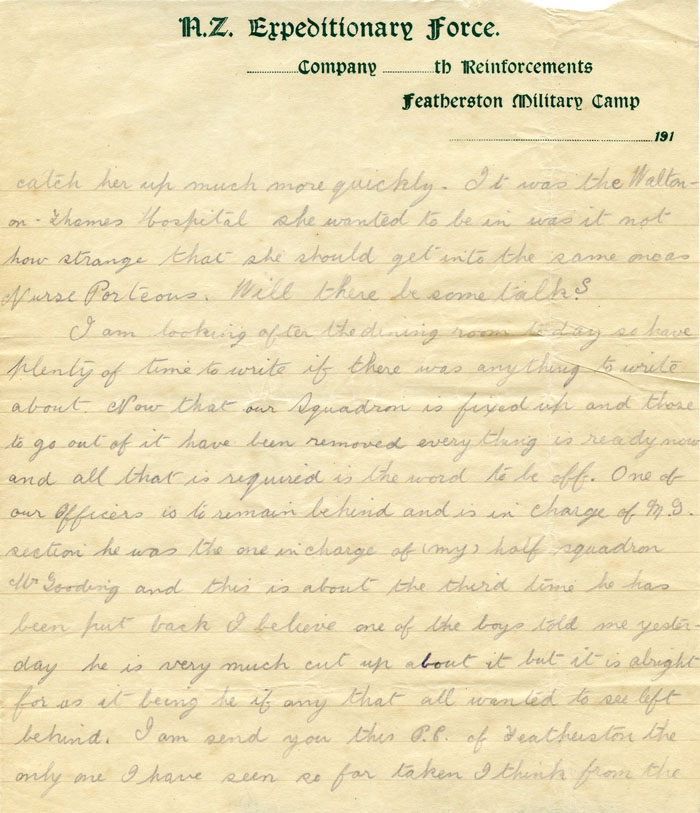 N.Z. Expeditionary Force.
Company th Reinforcements
Featherston Military Camp
191
catch her up much more quickly. It was the Walton-
on-Thames Hospital she wanted to be in was it not
how strange that she should get into the same one as
Nurse Porteous. Will there be some talk?
I am looking after the dining room today so have
plenty of time to write if there was anything to write
about. Now that our Squadron is fixed up and those
to go out of it have been removed everything is ready now
and all that is required is the word to be off. One of
our Officers is to remain behind and is in charge of
section he was the one in charge of (my) half squadron
Mr Gooding and this is about the third time he has
been put back I believe one of the boys told me yester-
day he is very much cut up about it but it is alright
for us it being he if any that all wanted to see left
behind. I am send you this P.P. of Featherston the
only one I have seen so far taken I think from the